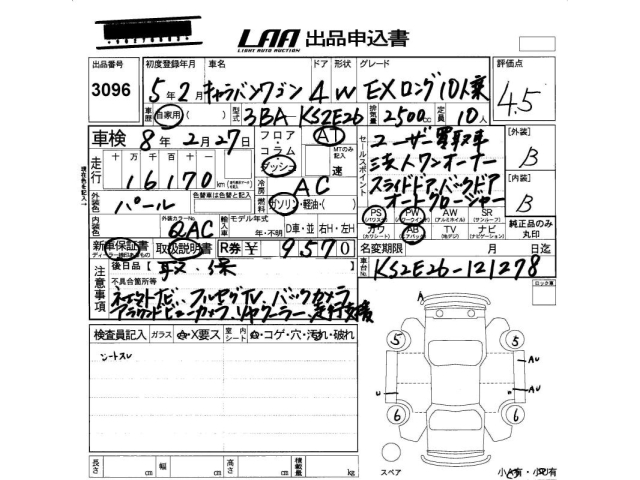 LAA 出品申込書
LIGHT AUTO AUCTION
出品番号 初度登録年月 車名 ドア 形状 グレード 評価点
3096 5年2月 キャラバンワゴン 4 W EXロング10人乗 4.5
車歴 自家用 ( ) 型式 3BA-KS2E26 排気量 2500cc 定員 10人
車検 8年2月27日 フロア・コラム・ダッシュ AT MTのみ記入 速
セールスポイント ユーザー買取車
法人ワンオーナー
スライドドア、バックドア
オートクロージャー
[外装] B
[内装] B
走行 十万 万 千 百 十 一
16170 km
冷房 AC
外装色 パール 色替車は色替と記入 燃料 ガソリン・軽油・( )
PS (パワステ) PW (パワーウインド) AW (アルミホイル) SR (サンルーフ)
カワ AB (エアバック) TV (地デジ) ナビ (ナビゲーション)
純正品のみ丸印
内装色 外装カラーNo. QAC 輸入車 モデル年式 年・不明 D車・並 右H・左H
新車保証書 取扱説明書 R券 ¥ 9570 名変期限 月 日迄
後日品 [ 取、保
車台No. KS2E26-121278
注意事項 不具合箇所等
ネオマトナビ、フルセグTV、バックカメラ
アラウンドビューカメラ、リヤクーラー、
ロック車
検査員記入 ガラス ・X要ス 室内シート ・コゲ・穴・汚れ・破れ
シートスレ
A
5 5
AU
U AU
6 6
スペア
長さ cm 幅 cm 高さ cm 積載量 kg
小A有・小U有